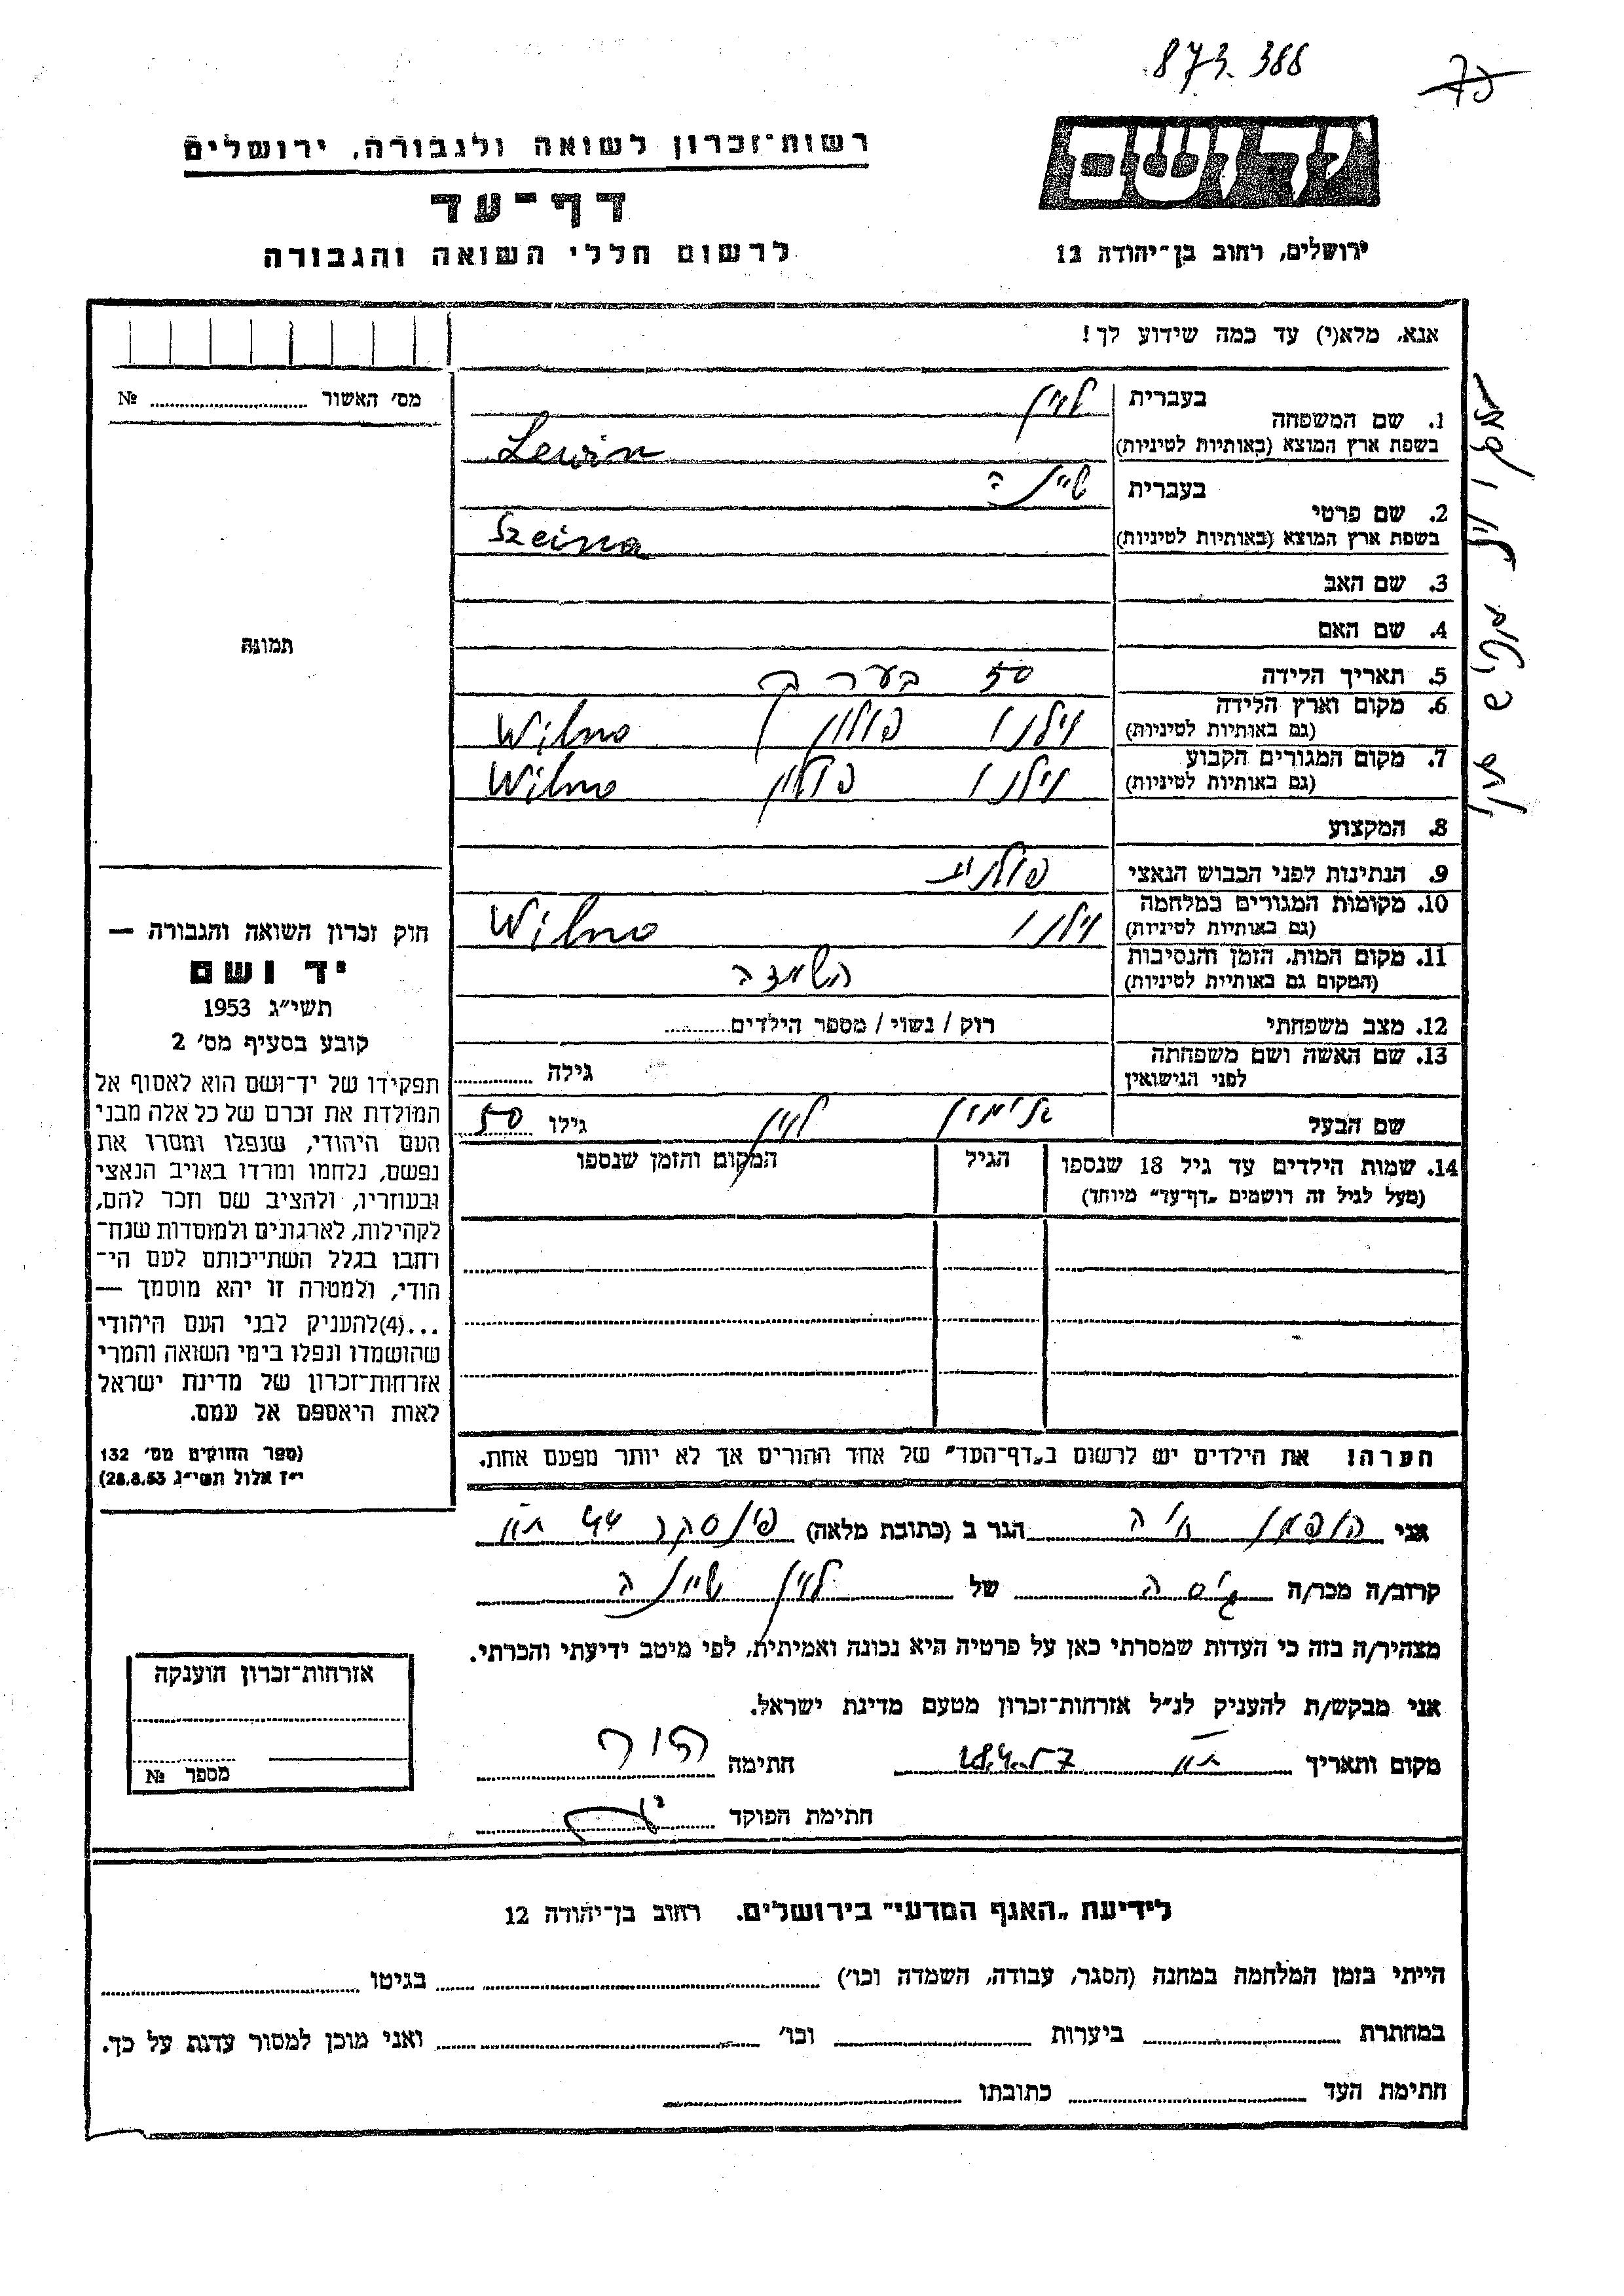 873.388
רשות־זכרון לשואה ולגבורה, ירושלים
דף־עד
לרשום חללי השואה והגבורה
יד ושם
ירושלים, רחוב בן־יהודה 12
אנא, מלא(י) עד כמה שידוע לך!
מס׳ האשור № 
תמונה
1. שם המשפחה בעברית לוין
בשפת ארץ המוצא (באותיות לטיניות) Lewin
2. שם פרטי בעברית שיינה
בשפת ארץ המוצא (באותיות לטיניות) Szeina
3. שם האב
4. שם האם
5. תאריך הלידה 50 בערך
6. מקום וארץ הלידה (גם באותיות לטיניות) וילנו פולין Wilno
7. מקום המגורים הקבוע (גם באותיות לטיניות) וילנו פולין Wilno
8. המקצוע
9. הנתינות לפני הכבוש הנאצי פולנית
10. מקומות המגורים במלחמה (גם באותיות לטיניות) וילנו Wilno
11. מקום המות, הזמן והנסיבות (המקום גם באותיות לטיניות) השמדה
12. מצב משפחתי רוק / נשוי / מספר הילדים
13. שם האשה ושם משפחתה לפני הנישואין גילה
שם הבעל לוין גילו 50
14. שמות הילדים עד גיל 18 שנספו (מעל לגיל זה רושמים „דף־עד״ מיוחד) הגיל המקום והזמן שנספו
הערה! את הילדים יש לרשום ב„דף־העד״ של אחד ההורים אך לא יותר מפעם אחת.
חוק זכרון השואה והגבורה —
יד ושם
תשי״ג 1953
קובע בסעיף מס׳ 2
תפקידו של יד־ושם הוא לאסוף אל
המולדת את זכרם של כל אלה מבני
העם היהודי, שנפלו ומסרו את
נפשם, נלחמו ומרדו באויב הנאצי
ובעוזריו, ולהציב שם וזכר להם,
לקהילות, לארגונים ולמוסדות שנח־
רחבו בגלל השתייכותם לעם הי־
הודי, ולמטרה זו יהא מוסמך —
...(4)להעניק לבני העם היהודי
שהושמדו ונפלו בימי השואה והמרי
אזרחות־זכרון של מדינת ישראל
לאות היאספם אל עמם.
(ספר החוקים מס׳ 132
י״ז אלול תשי״ג 28.8.53)
אני הופמן חיה הגר ב (כתובת מלאה) פינסקר 44 תא
קרוב/ה מכר/ה גיסה של לוין שיינה
מצהיר/ה בזה כי העדות שמסרתי כאן על פרטיה היא נכונה ואמיתית, לפי מיטב ידיעתי והכרתי.
אני מבקש/ת להעניק לנ״ל אזרחות־זכרון מטעם מדינת ישראל.
מקום ותאריך תא חתימה
חתימת הפוקד
אזרחות־זכרון הוענקה
מספר №
לידיעת „האגף המדעי״ בירושלים. רחוב בן־יהודה 12
הייתי בזמן המלחמה במחנה (הסגר, עבודה, השמדה וכו׳) בגיטו
במחתרת ביערות וכו׳ ואני מוכן למסור עדות על כך.
חתימת העד כתובתו